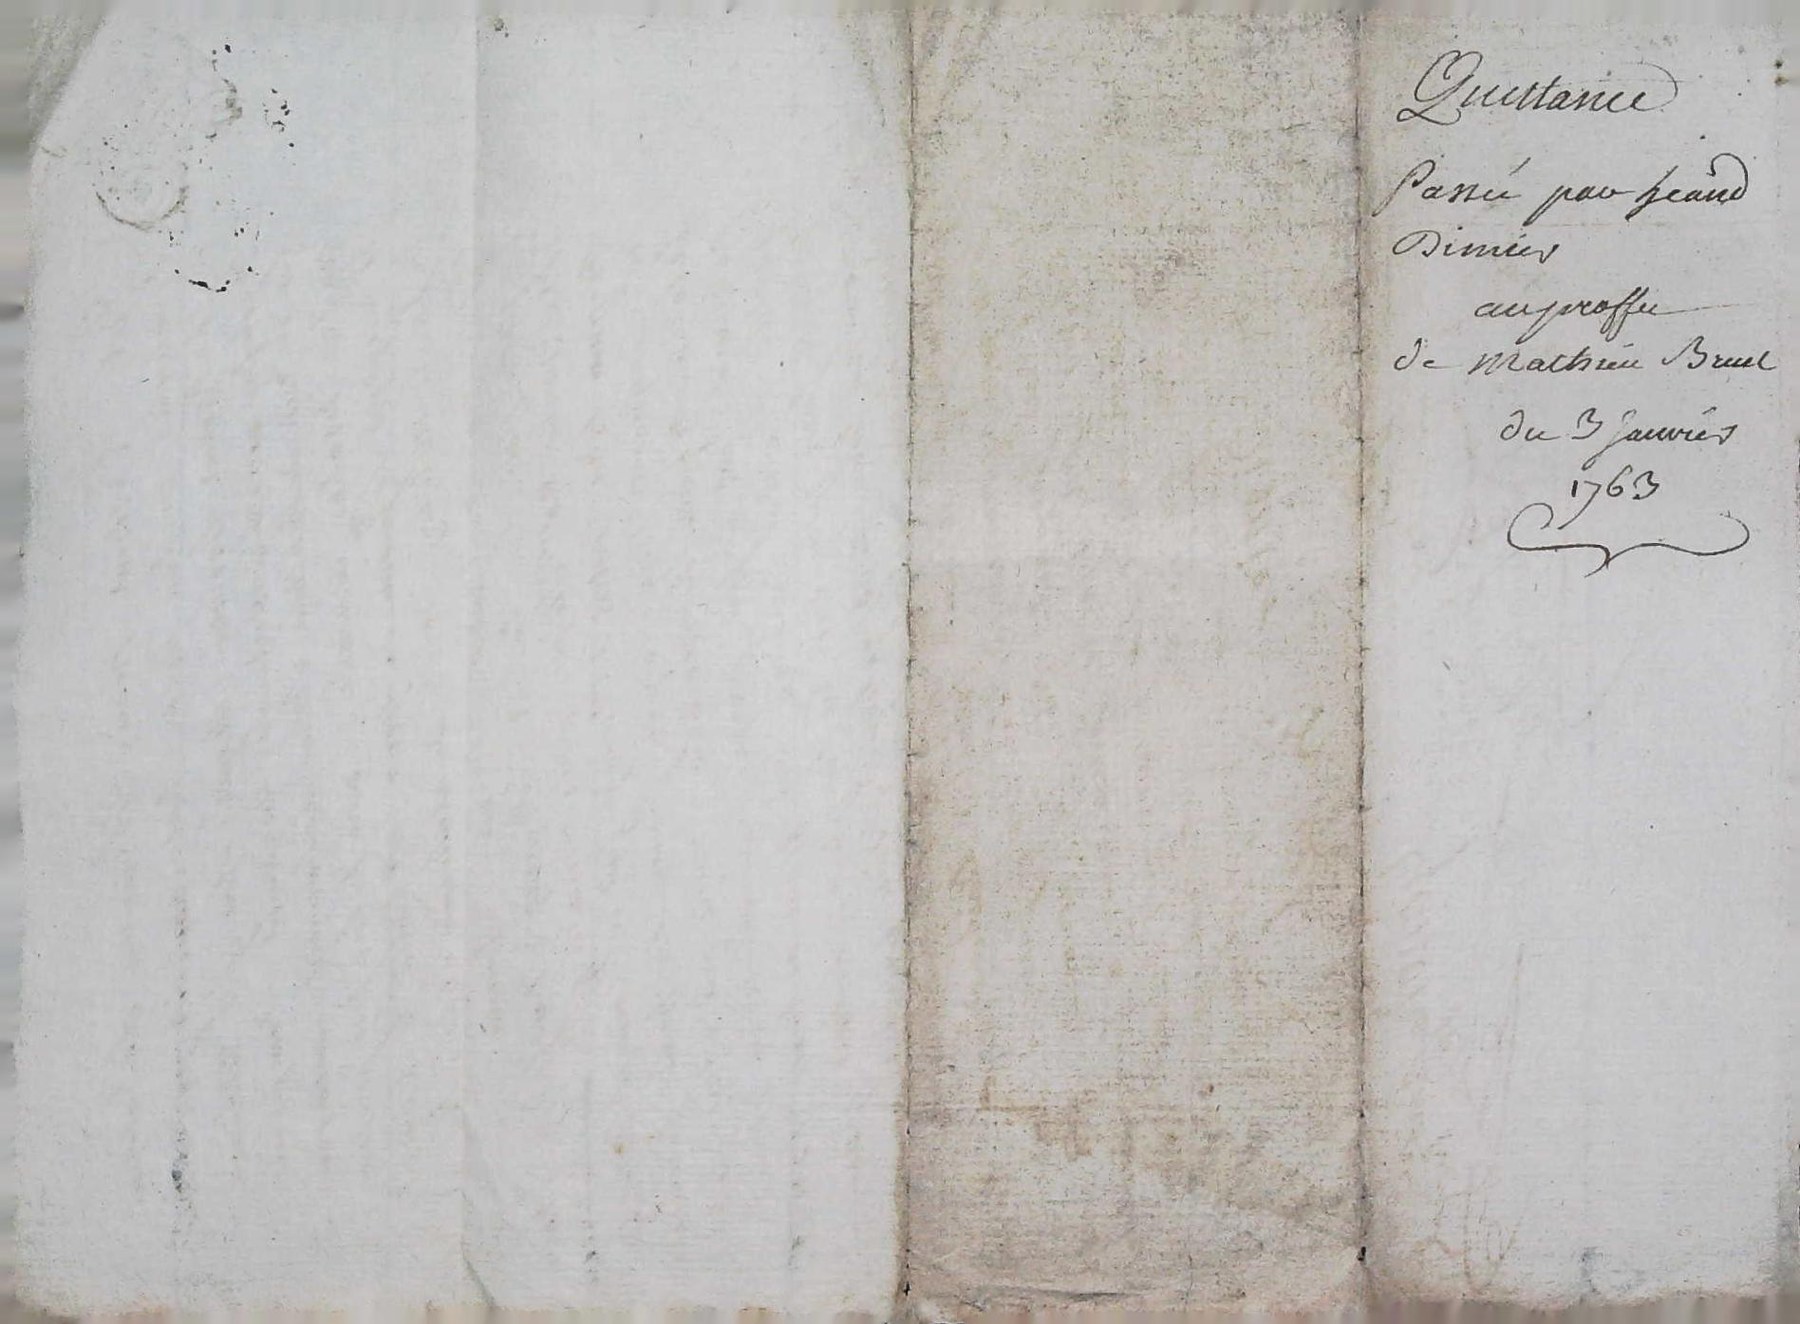 Quittance
Passée par Jean
Dimier
au proffit
de Mathieu Bruel
du 3 Janvier
1763